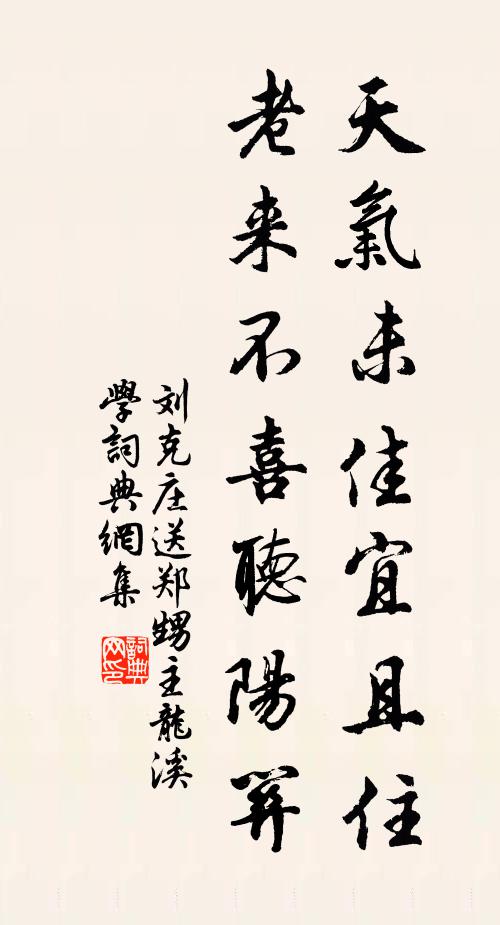 天氣未佳宜且住
老来不喜聽陽關
刘克庄送郑甥主龍溪
學詞典網集
詞典
网印